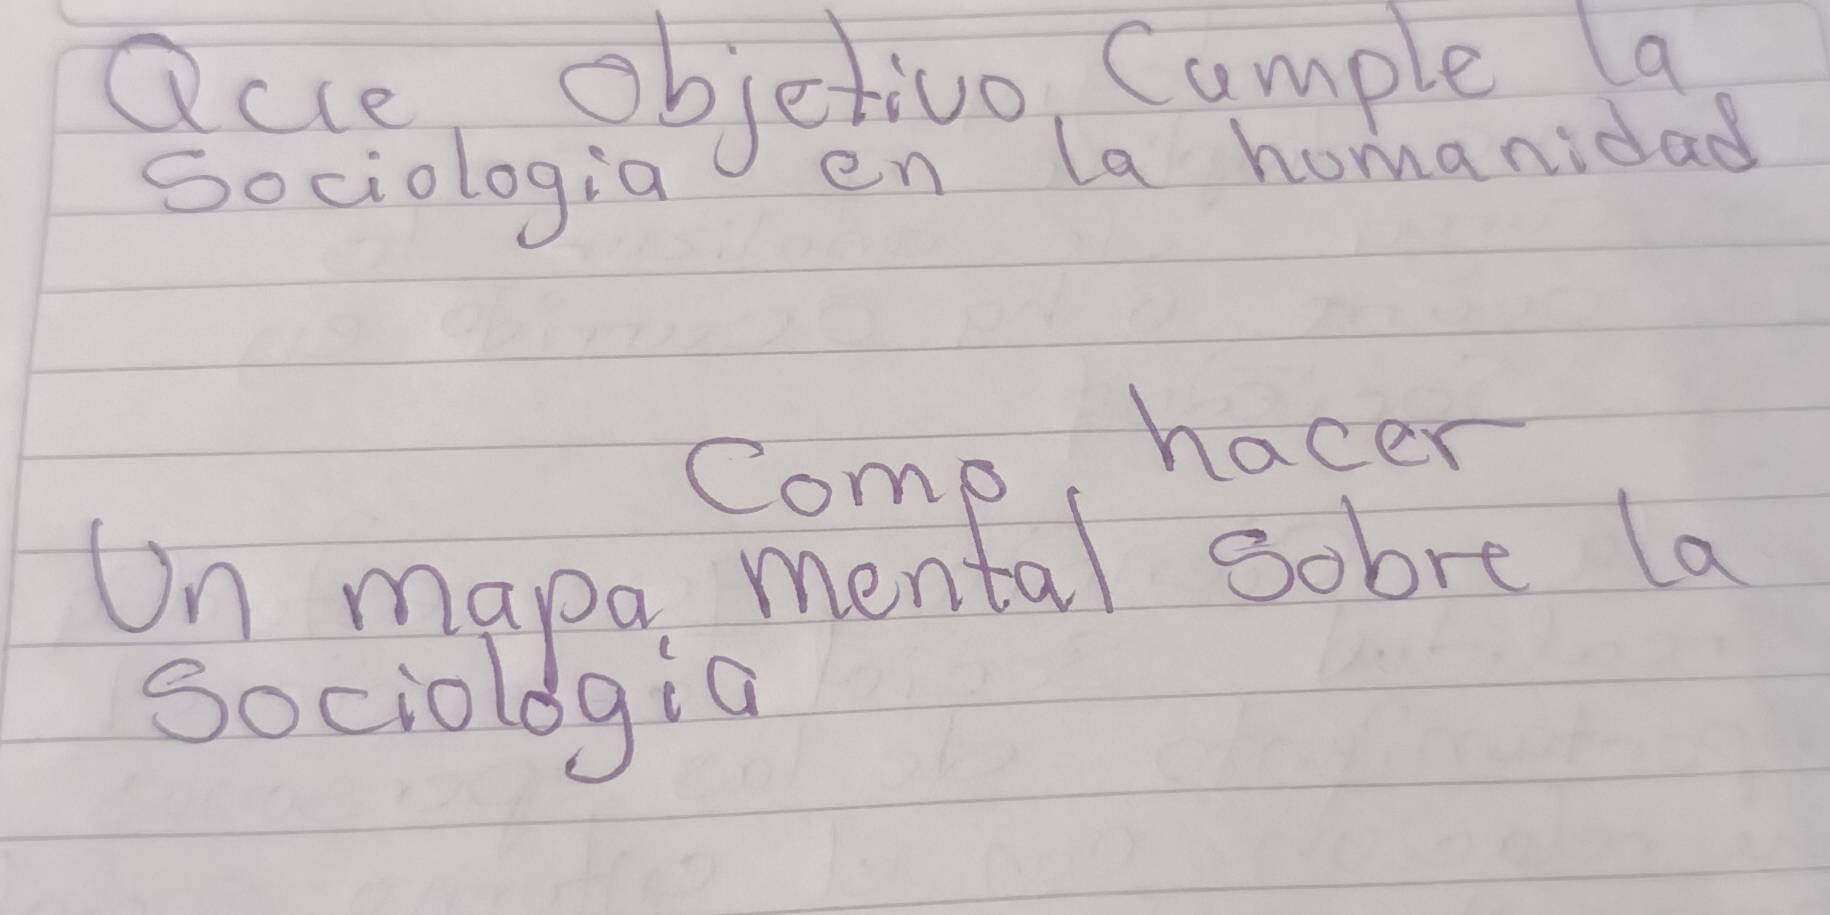 Que objetivo Cumple la
Sociologia en la humanidad
Como hacer
Un mapa mental sobre la
Sociologia